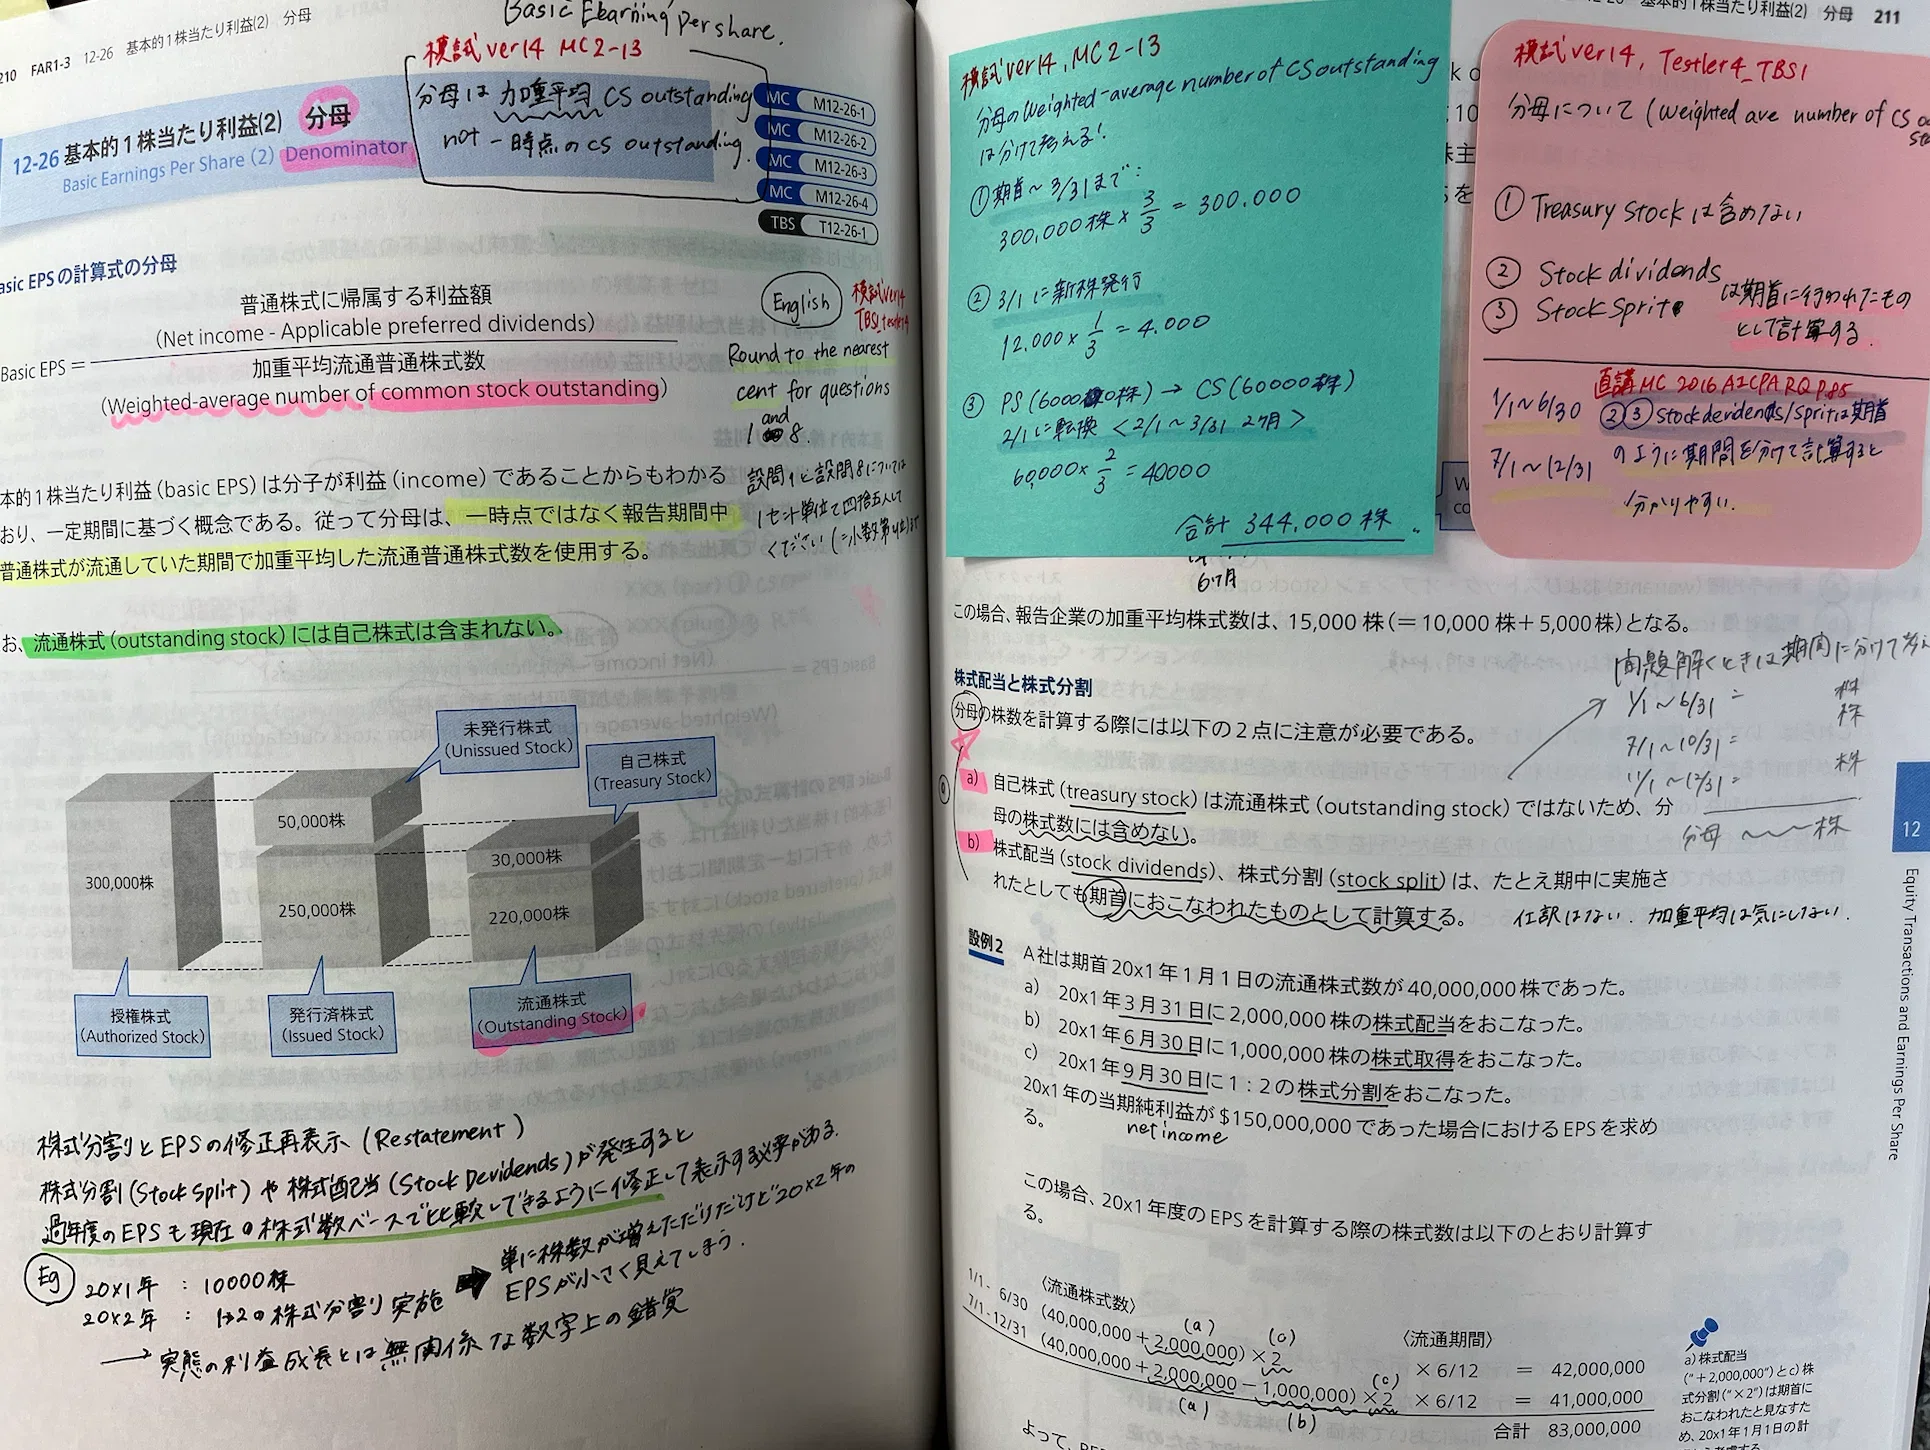 210 FAR1-3 12-26 基本的1株当たり利益(2) 分母
Basic Ebarning per share.
模試ver14 MC2-13
分母は加重平均 CS outstanding
not 一時点のCS outstanding.
12-26 基本的1株当たり利益(2) 分母
Basic Earnings Per Share (2) Denominator
MC M12-26-1
MC M12-26-2
MC M12-26-3
MC M12-26-4
TBS T12-26-1
asic EPSの計算式の分母
Basic EPS =
普通株式に帰属する利益額
(Net income - Applicable preferred dividends)
加重平均流通普通株式数
(Weighted-average number of common stock outstanding)
English
模試ver14
TBS1 testler4
Round to the nearest
cent for questions
and
1 8.
設問1と設問8については
1セント単位で四捨五入して
ください
本的1株当たり利益(basic EPS)は分子が利益(income)であることからもわかる
おり、一定期間に基づく概念である。従って分母は、一時点ではなく報告期間中
普通株式が流通していた期間で加重平均した流通普通株式数を使用する。
お、流通株式(outstanding stock)には自己株式は含まれない。
未発行株式
(Unissued Stock)
自己株式
(Treasury Stock)
300,000株
50,000株
250,000株
30,000株
220,000株
授権株式
(Authorized Stock)
発行済株式
(Issued Stock)
流通株式
(Outstanding Stock)
株式分割とEPSの修正再表示 (Restatement)
株式分割(Stock Split)や株式配当(Stock Devidends)が発生すると
過年度のEPSも現在の株式数ベースで比較できるように修正して表示する必要がある.
Eg
20x1年 : 10000株
20x2年 : 1→2の株式分割り実施
単に株数が増えただけだけど20x2年の
EPSが小さく見えてしまう.
→ 実態の利益成長とは無関係な数字上の錯覚
基本的1株当たり利益(2) 分母 211
模試ver14, MC2-13
分母のWeighted-average number of CS outstanding
は分けて考える!
① 期首~3/31まで:
300,000株 × 3/3 = 300,000
② 3/1に新株発行
12,000 × 1/3 = 4,000
③ PS(60000株) → CS(60000株)
2/1に転換 <2/1~3/31 2ヶ月>
60,000 × 2/3 = 40000
合計 344,000株.
模試ver14, Testler4_TBS1
分母について (Weighted ave number of CS
① Treasury stockは含めない
② Stock dividends
③ Stock Sprite
は期首に行われたもの
として計算する.
直講MC 2016 AICPA RQ P.85
1/1~6/30
7/1~12/31
②③Stock devidends/Spritは期首
のように期間を分けて計算すると
分かりやすい.
6ヶ月
この場合、報告企業の加重平均株式数は、15,000株(=10,000株+5,000株)となる。
問題解くときは期間に分けて考
1/1~6/31 = 株
株
7/1~10/31 =
11/1~12/31 = 株
分母 ~~~株
株式配当と株式分割
分母の株数を計算する際には以下の2点に注意が必要である。
a) 自己株式(treasury stock)は流通株式(outstanding stock)ではないため、分
母の株式数には含めない。
b) 株式配当(stock dividends)、株式分割(stock split)は、たとえ期中に実施さ
れたとしても期首におこなわれたものとして計算する。
仕訳はない. 加重平均は気にしない.
設例2
A社は期首20x1年1月1日の流通株式数が40,000,000株であった。
a) 20x1年3月31日に2,000,000株の株式配当をおこなった。
b) 20x1年6月30日に1,000,000株の株式取得をおこなった。
c) 20x1年9月30日に1:2の株式分割をおこなった。
20x1年の当期純利益が$150,000,000であった場合におけるEPSを求め
る。
net income
この場合、20x1年度のEPSを計算する際の株式数は以下のとおり計算す
る。
〈流通株式数〉 〈流通期間〉
(a) (c)
1/1- 6/30 (40,000,000+2,000,000)×2 ×6/12 = 42,000,000
7/1-12/31 (40,000,000+2,000,000-1,000,000)×2 ×6/12 = 41,000,000
(a) (b) (c)
合計 83,000,000
a)株式配当
("+2,000,000")とc)株
式分割("×2")は期首に
おこなわれたと見なすた
め、20x1年1月1日の計
12
Equity Transactions and Earnings Per Share